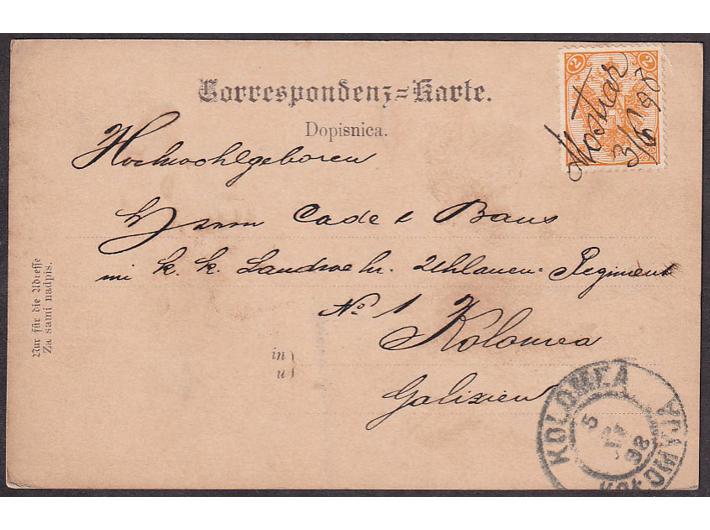 Correspondenz-Karte.
Dopisnica.
2 2
Mostar
3/6 98
Hochwohlgeboren
Herrn Cadet Baus
im k. k. Landwehr. Uhlanen-Regiment
No 1 Kolomea
Galizien
in
u
Nur für die Adresse
Za sami nadpis.
KOLOMEA
5
98
KOŁOMYJA